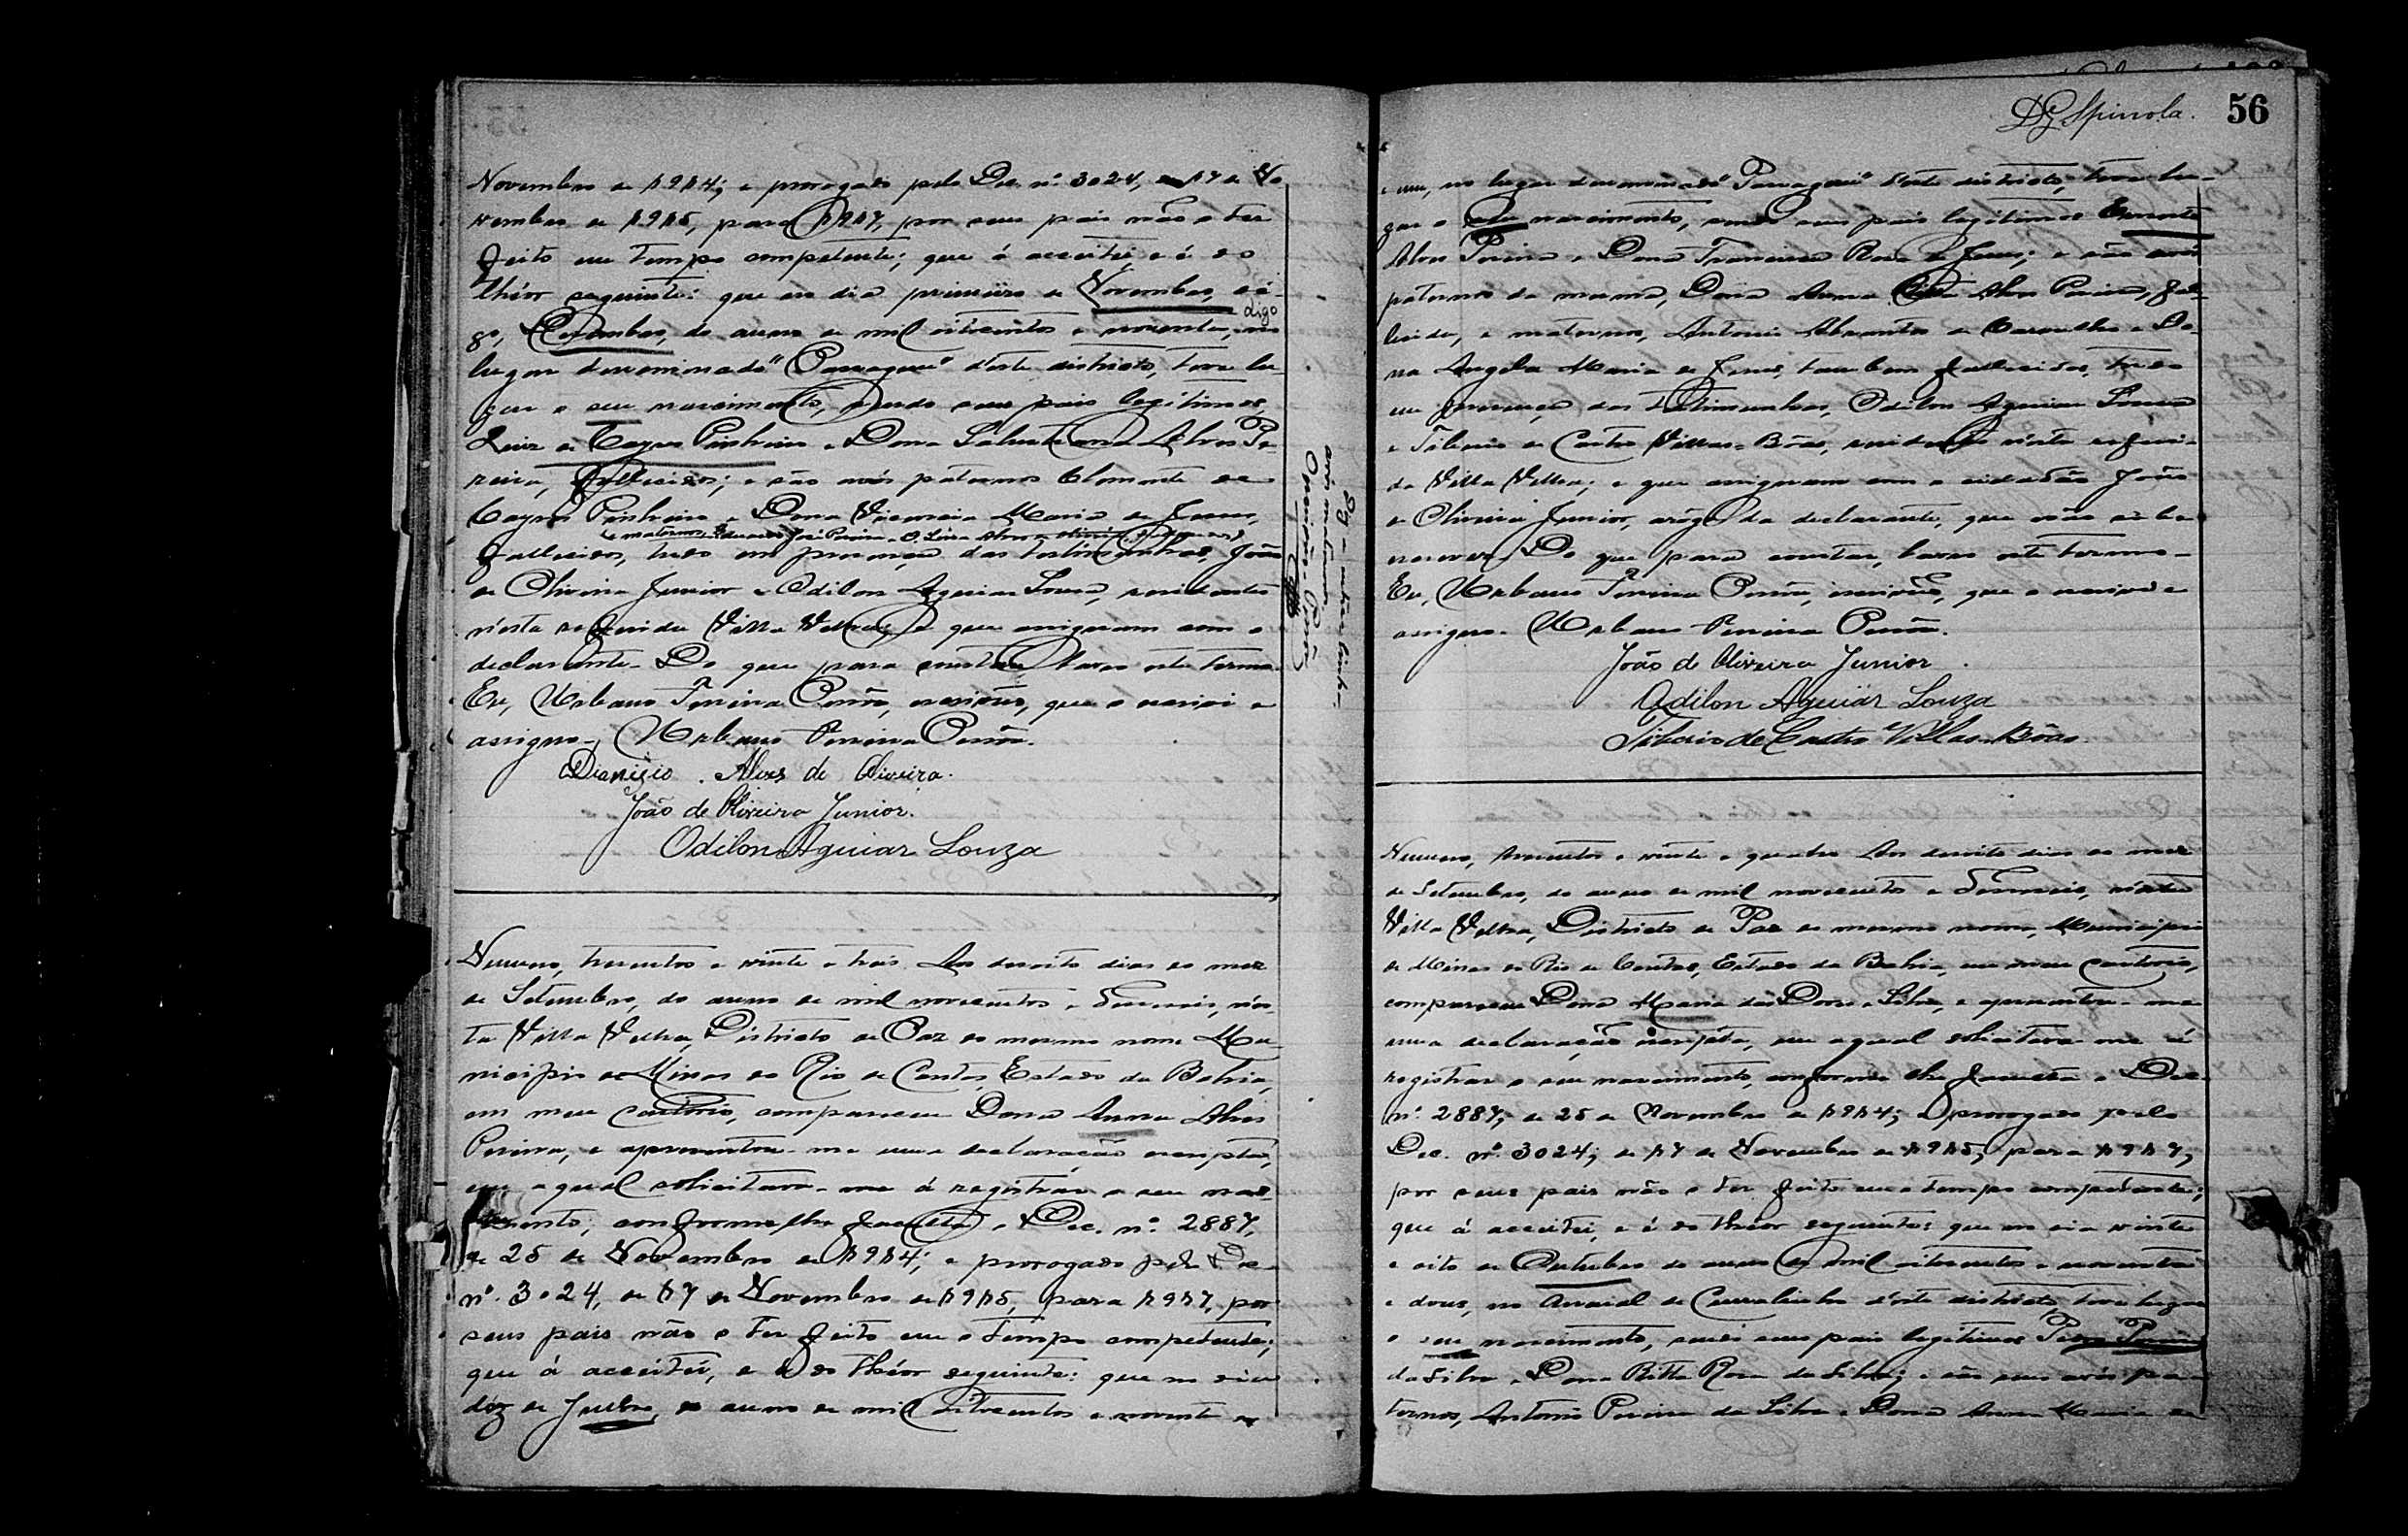 Novembro de 1914; e prorogado pelo Dec. nº 3024, de 17 de No
vembro de 1915, para 1917, por seus pais não o ter
feito em tempo competente; que á acceitei e é do
theór seguinte: que no dia primeiro de Novembro, di-
go, digo
Dezembro, do anno de mil oitocentos e noventa, no
lugar denominado "Parragua" d'este districto, teve lu
gar o seu nascimento, sendo seus pais legitimos,
Luiz de Pinheiro e Dona Alves Pe-
reira, fallecidos; e são avós paternos Clemente de
Pinheiro e Dona Maria de Jesus,
e maternos José Pereira e D. Alves
fallecidos, tudo em presença das testimunhas, João
de Oliveira Junior e Odilon Aguiar Souza, residentes
n'esta referida Villa Velha; e que assignam com o
declarante. Do que para constar, lavro este termo.
Eu, Urbano Pereira, escrivão, que o escrevi e
assigno. Urbano Pereira
Dionizio Alves de Oliveira.
João de Oliveira Junior.
Odilon Aguiar Souza
Numero, trezentos e vinte e tres. Aos dezoito dias do mez
de Setembro, do anno de mil novecentos e dezeseis, n'es-
ta Villa Velha, Districto de Paz do mesmo nome Mu-
nicipio de Minas do Rio de Contas, Estado da Bahia,
em meu cartorio, compareceu Dona Anna Alves
Pereira, e apresentou-me uma declaração escripta,
em a qual solicitava-me á registrar o seu nas-
cimento; conforme lhe faculta o Dec. nº 2887,
de 25 de Novembro de 1914; e prorogado pelo Dec
nº. 3024, de 17 de Novembro de 1915, para 1917, por
seus pais não o ter feito em o tempo competente;
que á acceitei, e é do theór seguinte: que no dia
déz de Julho, do anno de mil oitocentos e noventa
DG Spinola. 56
e um, no lugar denominado "Parragua" d'este districto, teve lu-
gar o seu nascimento, sendo seus pais legitimos
Alves Pereira e Dona Francisca Rosa de Jesus; e são avós
paternos da mesma, Dona Anna Alves Pereira, fal-
lecida, e maternos, Antonio de Carvalho e Do-
na Angela Maria de Jesus, tambem fallecidos, tudo
em presença das testimunhas, Odilon Aguiar Souza
e Tiberio de Castro Villas-Bôas, residentes n'esta referi-
da Villa Velha; e que assignam com o cidadão João
de Oliveira Junior, arôgo da declarante, que não sabe
escrever. Do que para constar, lavro este termo.
Eu, Urbano Pereira, escrivão, que o escrevi e
assigno. Urbano Pereira
João de Oliveira Junior.
Odilon Aguiar Souza
Tiberio de Castro Villas-Bôas.
Numero, trezentos e vinte e quatro. Aos dezoito dias do mez
de Setembro, do anno de mil novecentos e dezeseis, n'esta
Villa Velha, Districto de Paz do mesmo nome, Municipio
de Minas do Rio de Contas, Estado da Bahia, em meu cartorio,
compareceu Dona Maria das Dores e Silva, e apresentou-me
uma declaração escripta, em a qual solicitava-me á
registrar o seu nascimento, conforme lhe faculta o Dec.
nº. 2887, de 25 de Novembro de 1914; e prorogado pelo
Dec. nº. 3024; de 17 de Novembro de 1915, para 1917,
por seus pais não o ter feito em o tempo competente;
que á acceitei, e é do theór seguinte: que no dia vinte
e oito de Outubro do anno de mil oitocentos e noventa
e dous, no Arraial de Curralinho d'este districto, teve lugar
o seu nascimento, sendo seus pais legitimos Pereira
da Silva e Dona Ritta Rosa da Silva; e são seus avós pa-
ternos, Antonio Pereira da Silva e Dona Anna Maria de